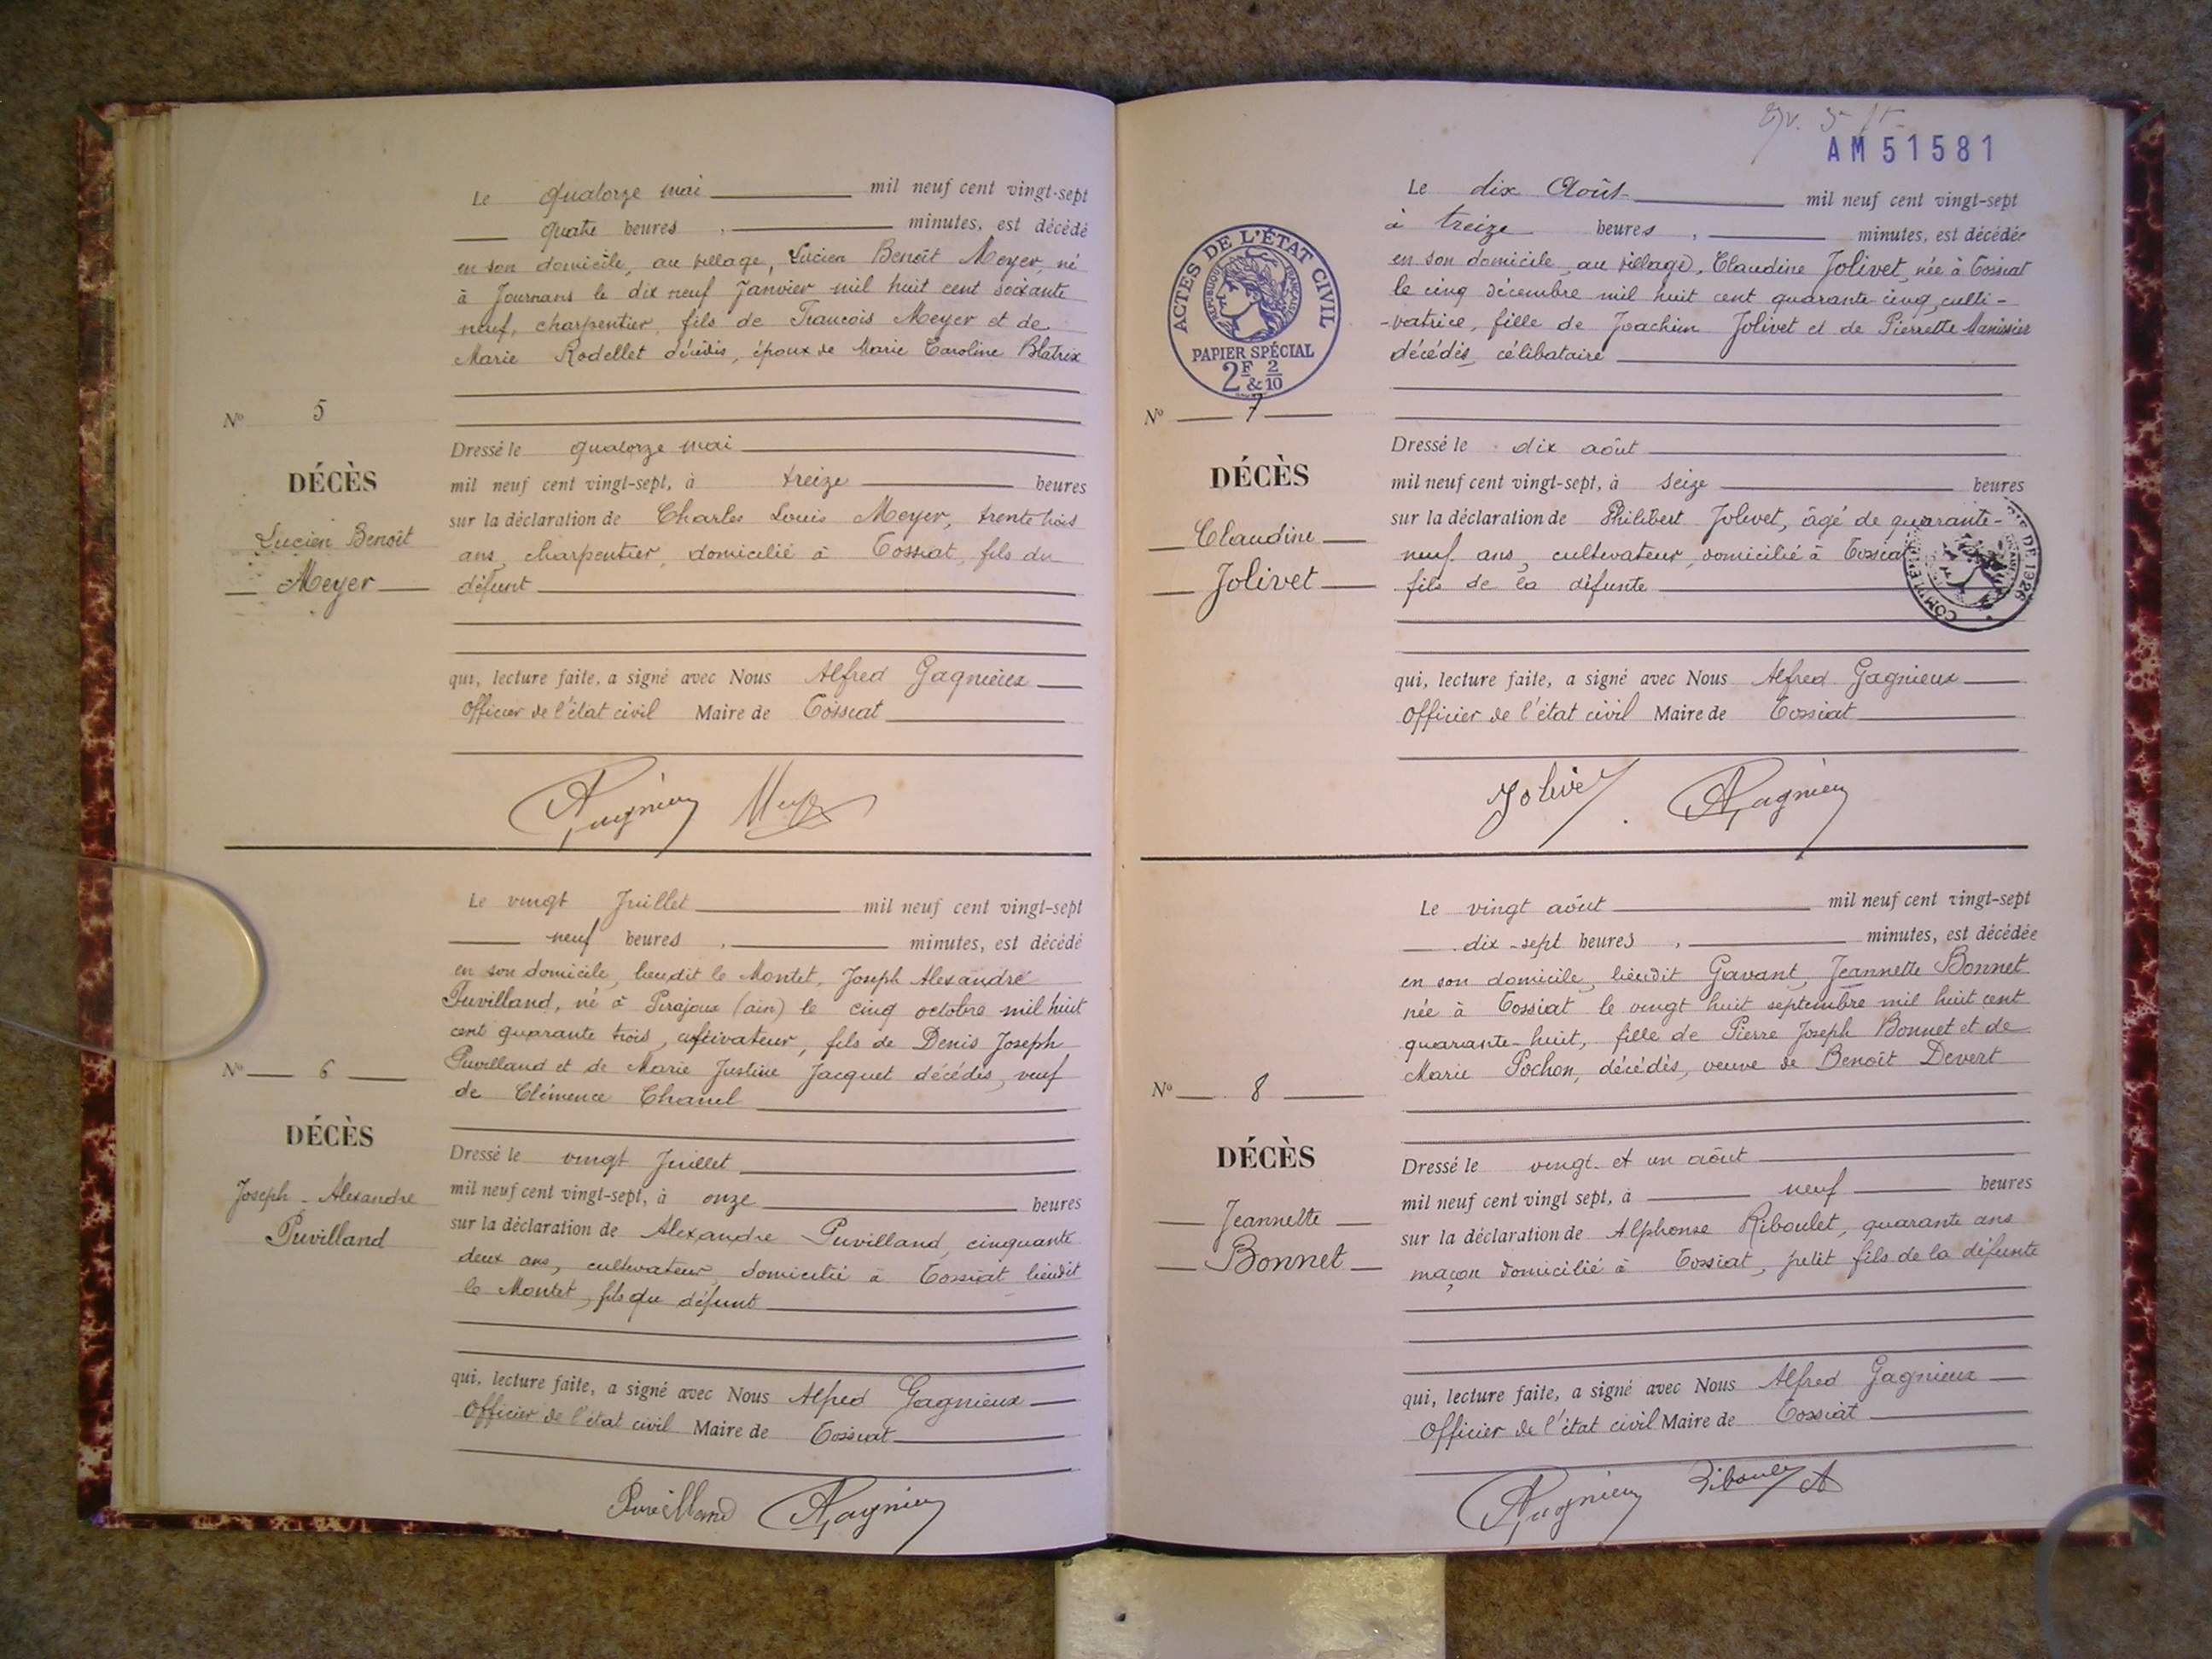 Le quatorze mai mil neuf cent vingt-sept
quatre heures, minutes, est décédé
en son domicile, au village, Lucien Benoît Meyer, né
à Journans le dix neuf Janvier mil huit cent soixante
neuf, charpentier, fils de Francois Meyer et de
Marie Rodellet décédés, époux de Marie Caroline Blatrix
N° 5
DÉCÈS
Lucien Benoît
Meyer
Dressé le quatorze mai
mil neuf cent vingt-sept, à treize heures
sur la déclaration de Charles Louis Meyer, trente trois
ans, charpentier, domicilié à Tossiat, fils du
défunt
qui, lecture faite, a signé avec Nous Alfred Gagnieux
Officier de l'état civil Maire de Tossiat
AGagnieux Meyer
Le vingt Juillet mil neuf cent vingt-sept
neuf heures, minutes, est décédé
en son domicile, lieudit le Montet, Joseph Alexandre
Puvilland, né à Pirajoux (ain) le cinq octobre mil huit
cent quarante trois, cultivateur, fils de Denis Joseph
Puvilland et de Marie Justine Jacquet décédés, veuf
de Clémence Chanel
N° 6
DÉCÈS
Joseph-Alexandre
Puvilland
Dressé le vingt Juillet
mil neuf cent vingt-sept, à onze heures
sur la déclaration de Alexandre Puvilland, cinquante
deux ans, cultivateur, domicilié à Tossiat lieudit
le Montet, fils du défunt
qui, lecture faite, a signé avec Nous Alfred Gagnieux
Officier de l'état civil Maire de Tossiat
Puvilland AGagnieux
AM 51581
Le dix Août mil neuf cent vingt-sept
à treize heures, minutes, est décédée
en son domicile, au village, Claudine Jolivet, née à Tossiat
le cinq décembre mil huit cent quarante cinq, culti-
-vatrice, fille de Joachim Jolivet et de Pierrette Manissier
décédés, célibataire
ACTES DE L'ÉTAT CIVIL
RÉPUBLIQUE FRANÇAISE
PAPIER SPÉCIAL
2F & 2/10
N° 7
DÉCÈS
Claudine
Jolivet
Dressé le dix août
mil neuf cent vingt-sept, à seize heures
sur la déclaration de Philibert Jolivet, âgé de quarante-
neuf ans, cultivateur, domicilié à Tossiat
fils de la défunte
DE 1926
qui, lecture faite, a signé avec Nous Alfred Gagnieux
Officier de l'état civil Maire de Tossiat
Jolivet AGagnieux
Le vingt août mil neuf cent vingt-sept
dix-sept heures, minutes, est décédée
en son domicile, lieudit Gravant, Jeannette Bonnet
née à Tossiat le vingt huit septembre mil huit cent
quarante-huit, fille de Pierre Joseph Bonnet et de
Marie Pochon, décédés, veuve de Benoît Devert
N° 8
DÉCÈS
Jeannette
Bonnet
Dressé le vingt et un août
mil neuf cent vingt sept, à neuf heures
sur la déclaration de Alphonse Riboulet, quarante ans
maçon domicilié à Tossiat, petit fils de la défunte
qui, lecture faite, a signé avec Nous Alfred Gagnieux
Officier de l'état civil Maire de Tossiat
AGagnieux Riboulet A